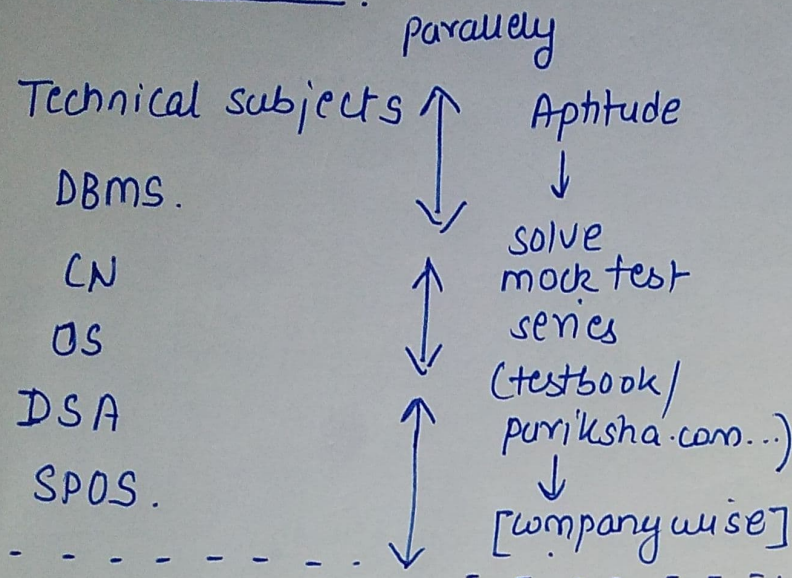 parallely
Technical subjects
DBMS.
CN
OS
DSA
SPOS.
Aptitude
solve
mock test
series
(testbook/
pariksha.com...)
[companywise]